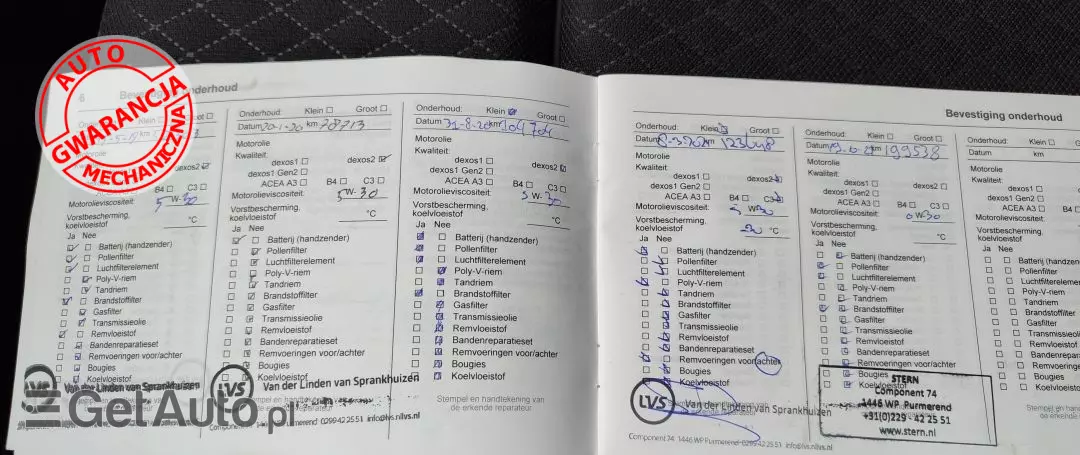 AUTO
GWARANCJA
MECHANICZNA
6
onderhoud
km
dexos2
B4 C3
Motorolieviscositeit: 5 W-30
Vorstbescherming,
koelvloeistof °C
Ja Nee
Batterij (handzender)
Pollenfilter
Luchtfilterelement
Poly-V-riem
Tandriem
Brandstoffilter
Gasfilter
Transmissieolie
Remvloeistof
Bandenreparatieset
Remvoeringen voor/achter
Bougies
Koelvloeistof
Van der Linden van Sprankhuizen
GetAuto.pl
Onderhoud: Klein Groot
Datum 20-1-20 km 78713
Motorolie
Kwaliteit:
dexos1 dexos2
dexos1 Gen2
ACEA A3 B4 C3
Motorolieviscositeit: 5 W-30
Vorstbescherming,
koelvloeistof °C
Ja Nee
Batterij (handzender)
Pollenfilter
Luchtfilterelement
Poly-V-riem
Tandriem
Brandstoffilter
Gasfilter
Transmissieolie
Remvloeistof
Bandenreparatieset
Remvoeringen voor/achter
Bougies
Koelvloeistof
LVS Van der Linden van Sprankhuizen
0299 42 25 51 info@lvs.nl lvs.nl
Onderhoud: Klein Groot
Datum 31-8-20 km 104704
Motorolie
Kwaliteit:
dexos1 dexos2
dexos1 Gen2
ACEA A3 B4 C3
Motorolieviscositeit: 5 W-30
Vorstbescherming,
koelvloeistof °C
Ja Nee
Batterij (handzender)
Pollenfilter
Luchtfilterelement
Poly-V-riem
Tandriem
Brandstoffilter
Gasfilter
Transmissieolie
Remvloeistof
Bandenreparatieset
Remvoeringen voor/achter
Bougies
Koelvloeistof
Stempel en handtekening van
de erkende reparateur
Bevestiging onderhoud
Onderhoud: Klein Groot
Datum km
Motorolie
Kwaliteit:
dexos1 dexos2
dexos1 Gen2
ACEA A3 B4 C3
Motorolieviscositeit: 5 W-30
Vorstbescherming,
koelvloeistof °C
Ja Nee
Batterij (handzender)
Pollenfilter
Luchtfilterelement
Poly-V-riem
Tandriem
Brandstoffilter
Gasfilter
Transmissieolie
Remvloeistof
Bandenreparatieset
Remvoeringen voor/achter
Bougies
Koelvloeistof
LVS Van der Linden van Sprankhuizen
Component 74 1446 WP Purmerend 0299 42 25 51 info@lvs.nl lvs.nl
Onderhoud: Klein Groot
Datum km 199538
Motorolie
Kwaliteit:
dexos1 dexos2
dexos1 Gen2
ACEA A3 B4 C3
Motorolieviscositeit: 0 W-30
Vorstbescherming,
koelvloeistof °C
Ja Nee
Batterij (handzender)
Pollenfilter
Luchtfilterelement
Poly-V-riem
Tandriem
Brandstoffilter
Gasfilter
Transmissieolie
Remvloeistof
Bandenreparatieset
Remvoeringen voor/achter
Bougies
Koelvloeistof
STERN
Component 74
1446 WP Purmerend
+31(0)229 - 42 25 51
www.stern.nl
Onderhoud: Klein
Datum km
Motorolie
Kwaliteit:
dexos1
dexos1 Gen2
ACEA A3
Motorolieviscositeit:
Vorstbescherming,
koelvloeistof
Ja Nee
Batterij (han
Pollenfilter
Luchtfilterelemen
Poly-V-riem
Tandriem
Brandstoffilter
Gasfilter
Transmissieol
Remvloeistof
Bandenrepara
Remvoeringen
Bougies
Koelvloeisto
Stempel en
de erken